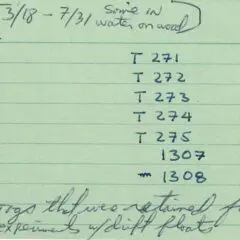 3/18 - 7/31 some in
water on wood
T 271
T 272
T 273
T 274
T 275
1307
1308
that was retained
experiments w/ drift floats